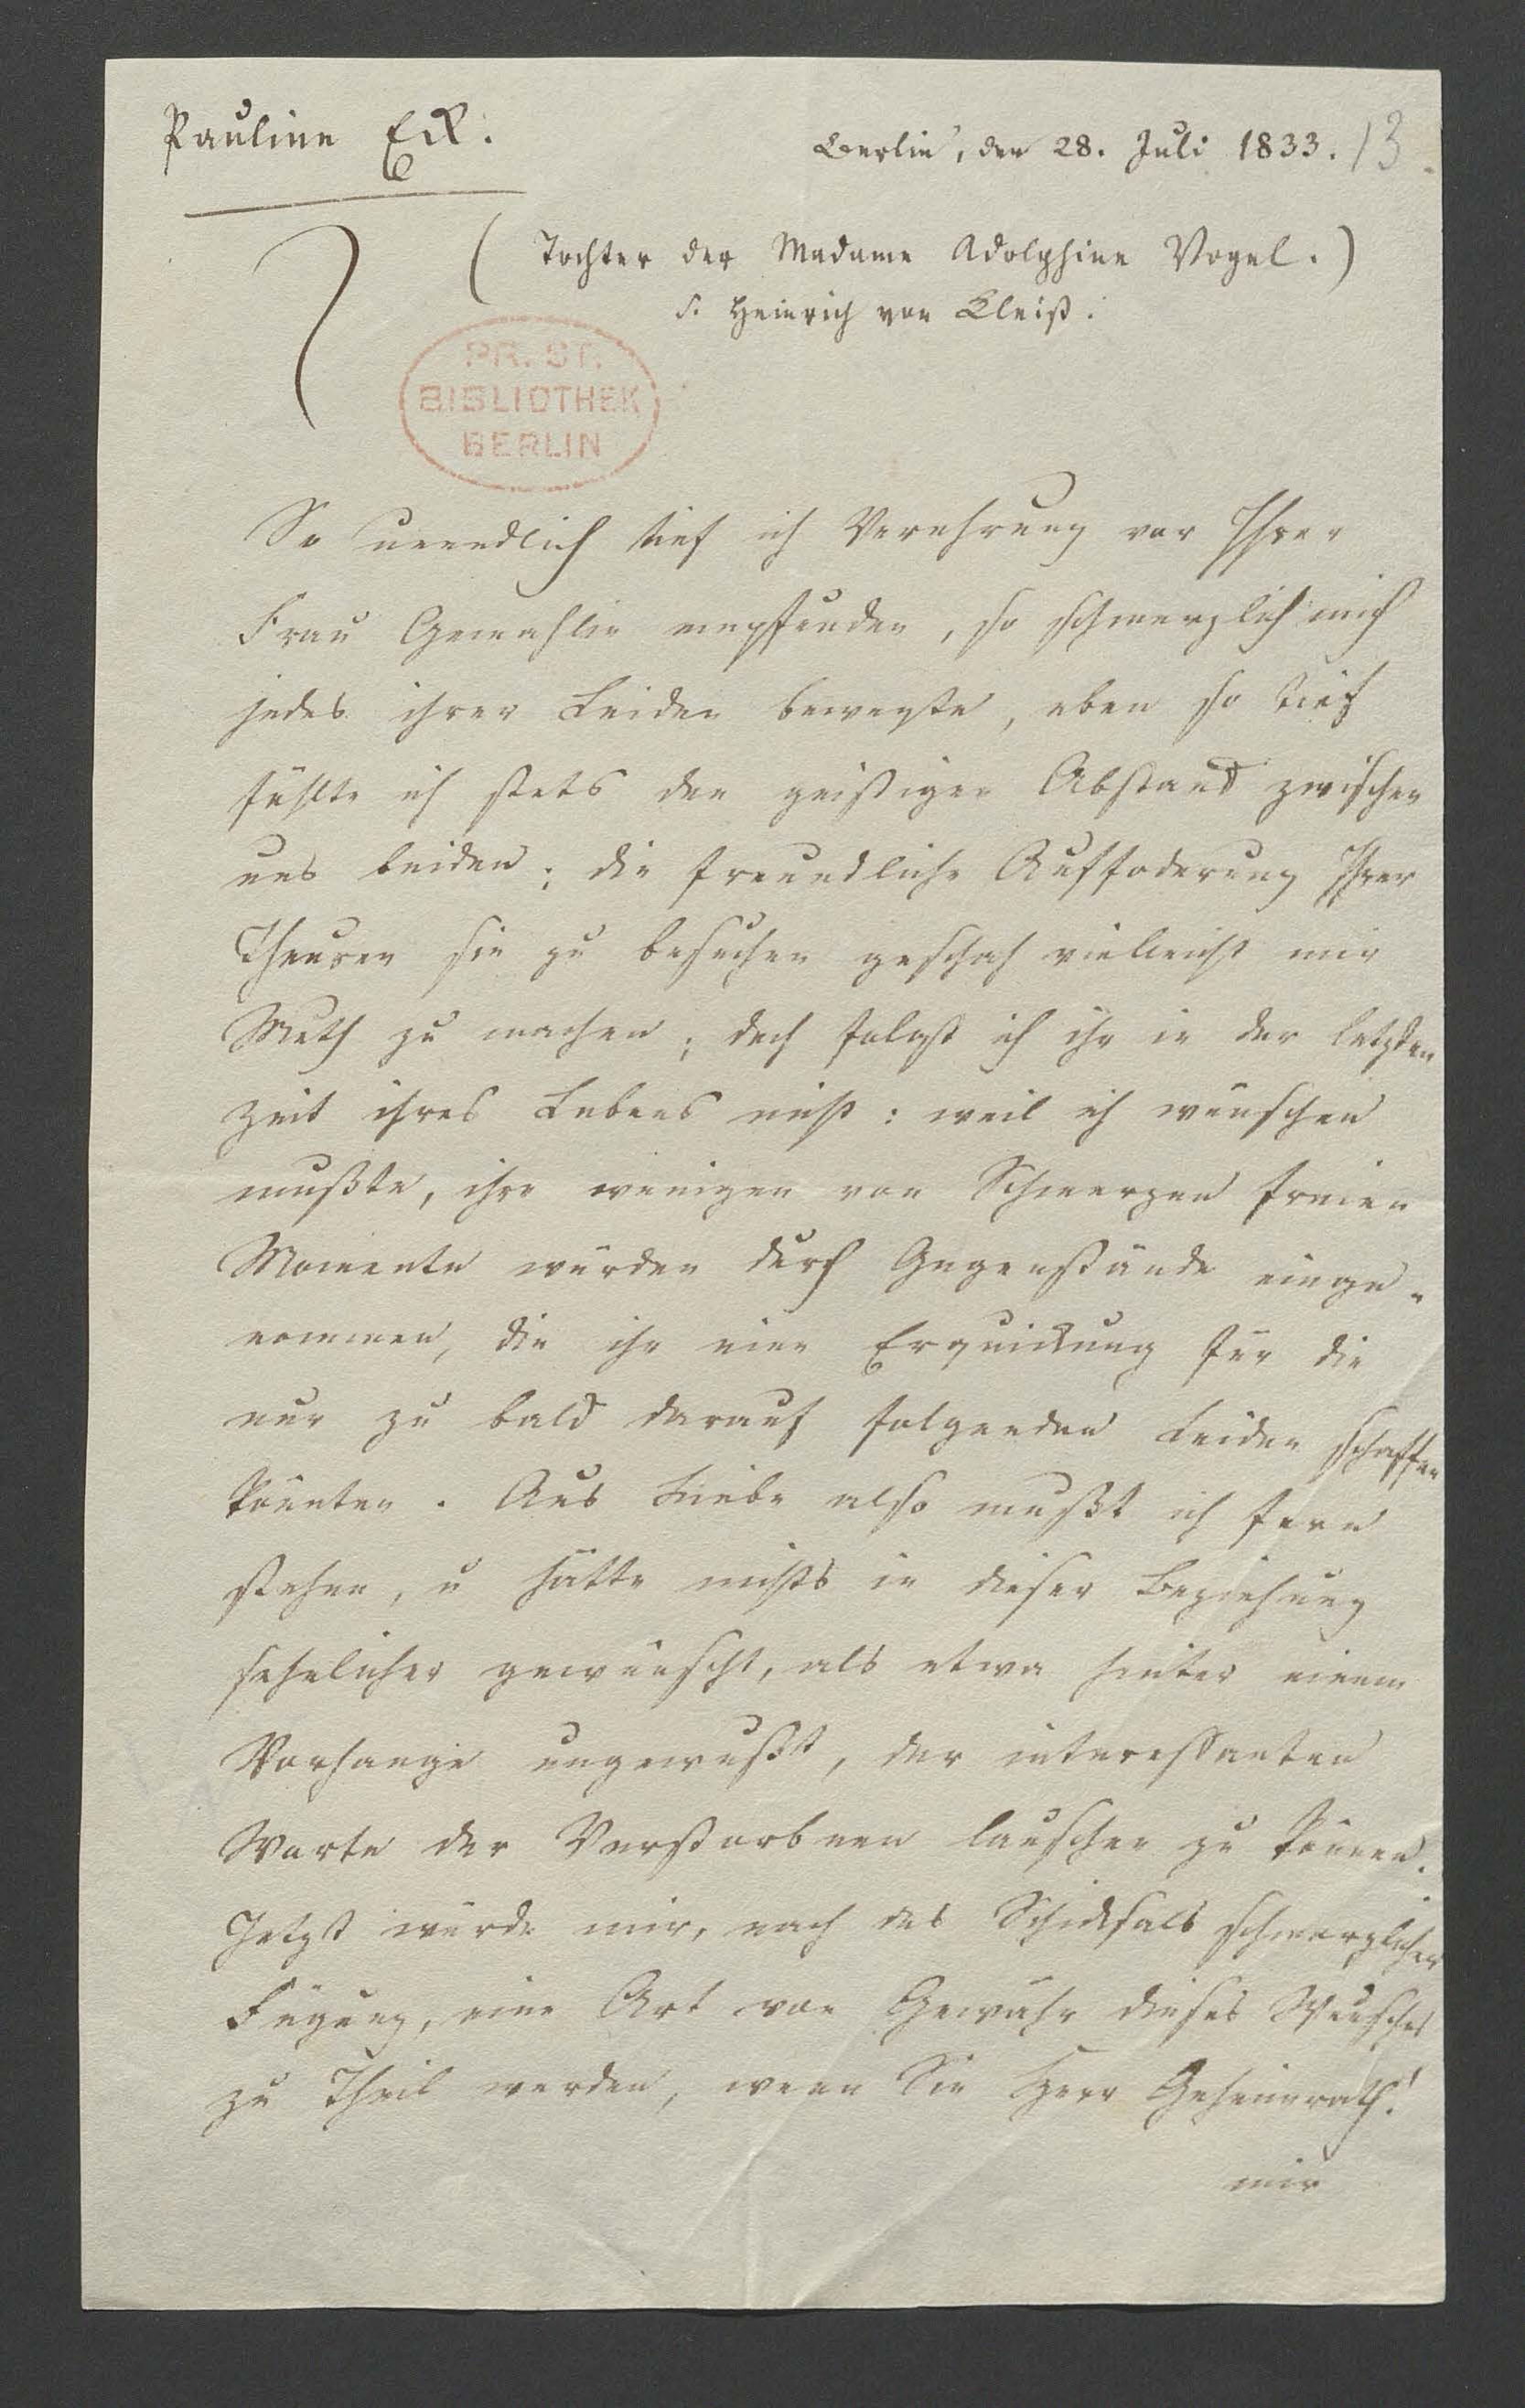 Pauline Eck.
Berlin, den 28. Juli 1833. 13.
(Tochter der Madame Adolphine Vogel.)
S. Heinrich von Kleist.
PR. ST.
BIBLIOTHEK
BERLIN
So unendlich tief ich Verehrung vor Ihrer
Frau Gemahlin empfunden, so schmerzlich mich
jedes ihrer Leiden bewegte, eben so tief
fühlte ich stets den geistigen Abstand zwischen
uns beiden; die freundliche Auffoderung Ihrer
Theuren sie zu besuchen geschah vielleicht mir
Muth zu machen; doch folgt ich ihr in der letzten
Zeit ihres Lebens nicht: weil ich wünschen
mußte, ihre wenigen von Schmerzen freien
Momente würden durch Gegenstände einge-
nommen, die ihr eine Erquickung für die
nur zu bald darauf folgenden Leiden schaffen
könnten. Aus Liebe also mußt ich fern
stehen, u hätte nichts in dieser Beziehung
sehnlicher gewünscht, als etwa hinter einem
Vorhange ungewußt, der interessanten
Worte der Verstorbnen lauschen zu können.
Jetzt würde mir, nach des Schicksals schmerzlicher
Fügung, eine Art von Gewähr dieses Wunsches
zu Theil werden, wenn Sie Herr Geheimrath!
mir